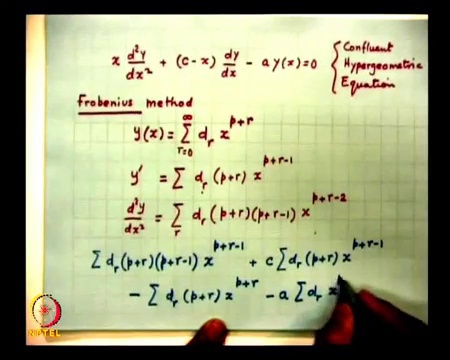 x d²y/dx² + (c-x) dy/dx - a y(x) = 0 { Confluent
Hypergeometric
Equation
Frobenius method
y(x) = ∑_{r=0}^{∞} d_r x^{p+r}
y' = ∑ d_r (p+r) x^{p+r-1}
d²y/dx² = ∑_r d_r (p+r)(p+r-1) x^{p+r-2}
∑ d_r (p+r)(p+r-1) x^{p+r-1} + c ∑ d_r (p+r) x^{p+r-1}
- ∑ d_r (p+r) x^{p+r} - a ∑ d_r x
NPTEL